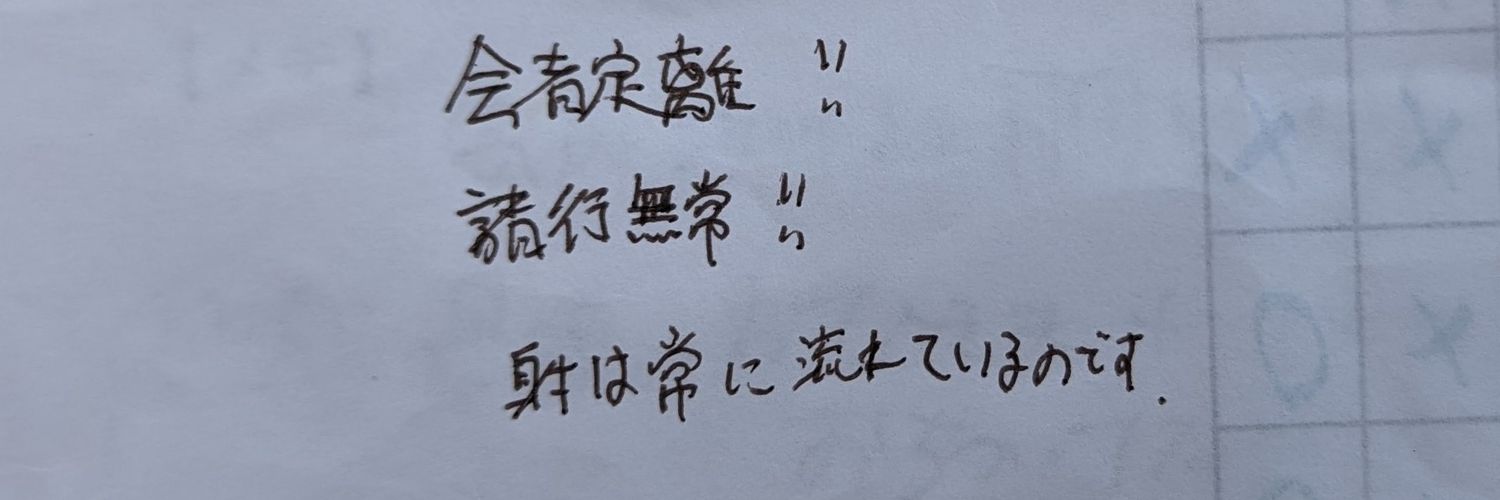 会者定離!!
諸行無常!!
射は常に流れているのです.